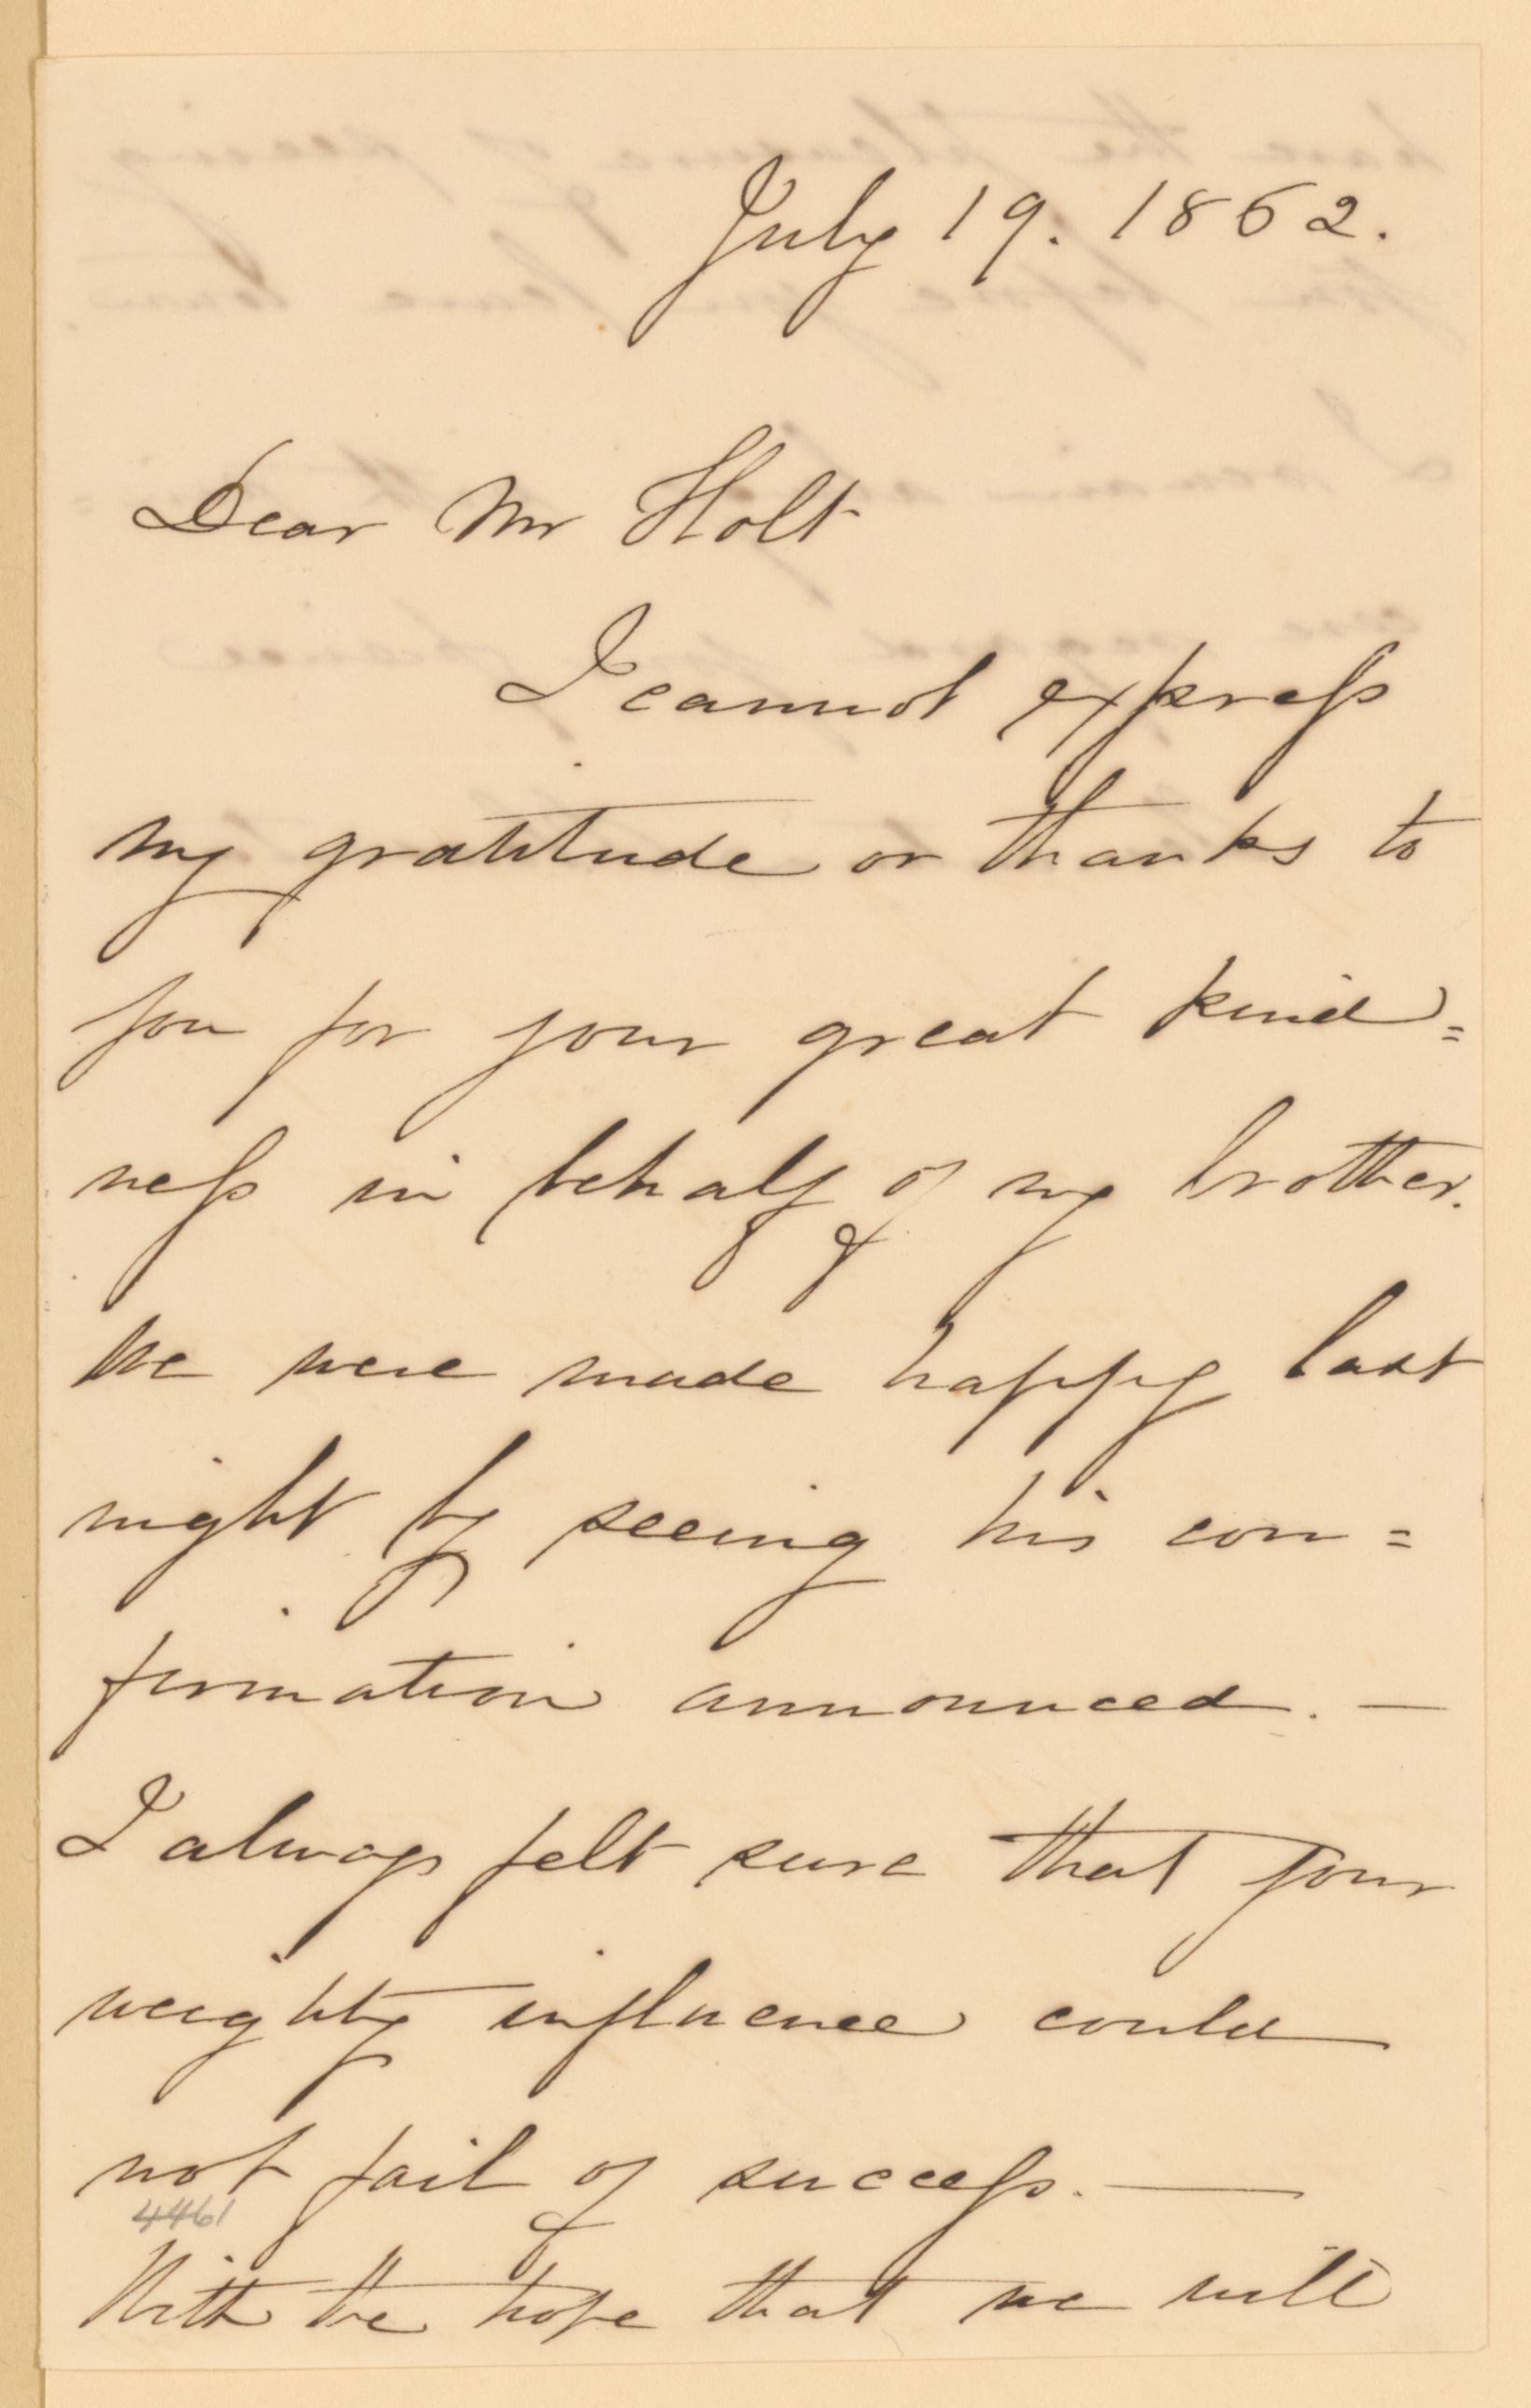 July 19. 1862.
Dear Mr Holt
I cannot express
my gratitude or thanks to
you for your great kind=
ness in behalf of my brother.
We were made happy last
night by seeing his con=
firmation announced. —
I always felt sure that your
weighty influence could
not fail of success. —
4461
With the hope that we will